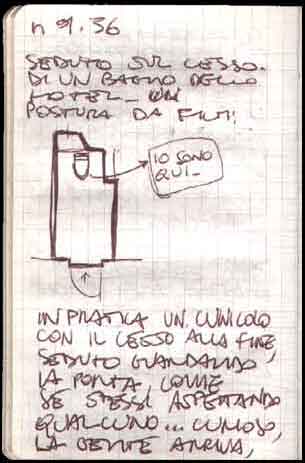 n 9.36
SEDUTO SUL CESSO.
DI UN BAGNO DELLO
HOTEL_ UN
POSTURA DA FILM!
IO SONO
QUI_
IN PRATICA UN CUNICOLO
CON IL CESSO ALLA FINE,
SEDUTO GUARDANDO
LA PORTA, COME
SE STESSI ASPETTANDO
QUALCUNO... CURIOSO,
LA GENTE ARRIVA,